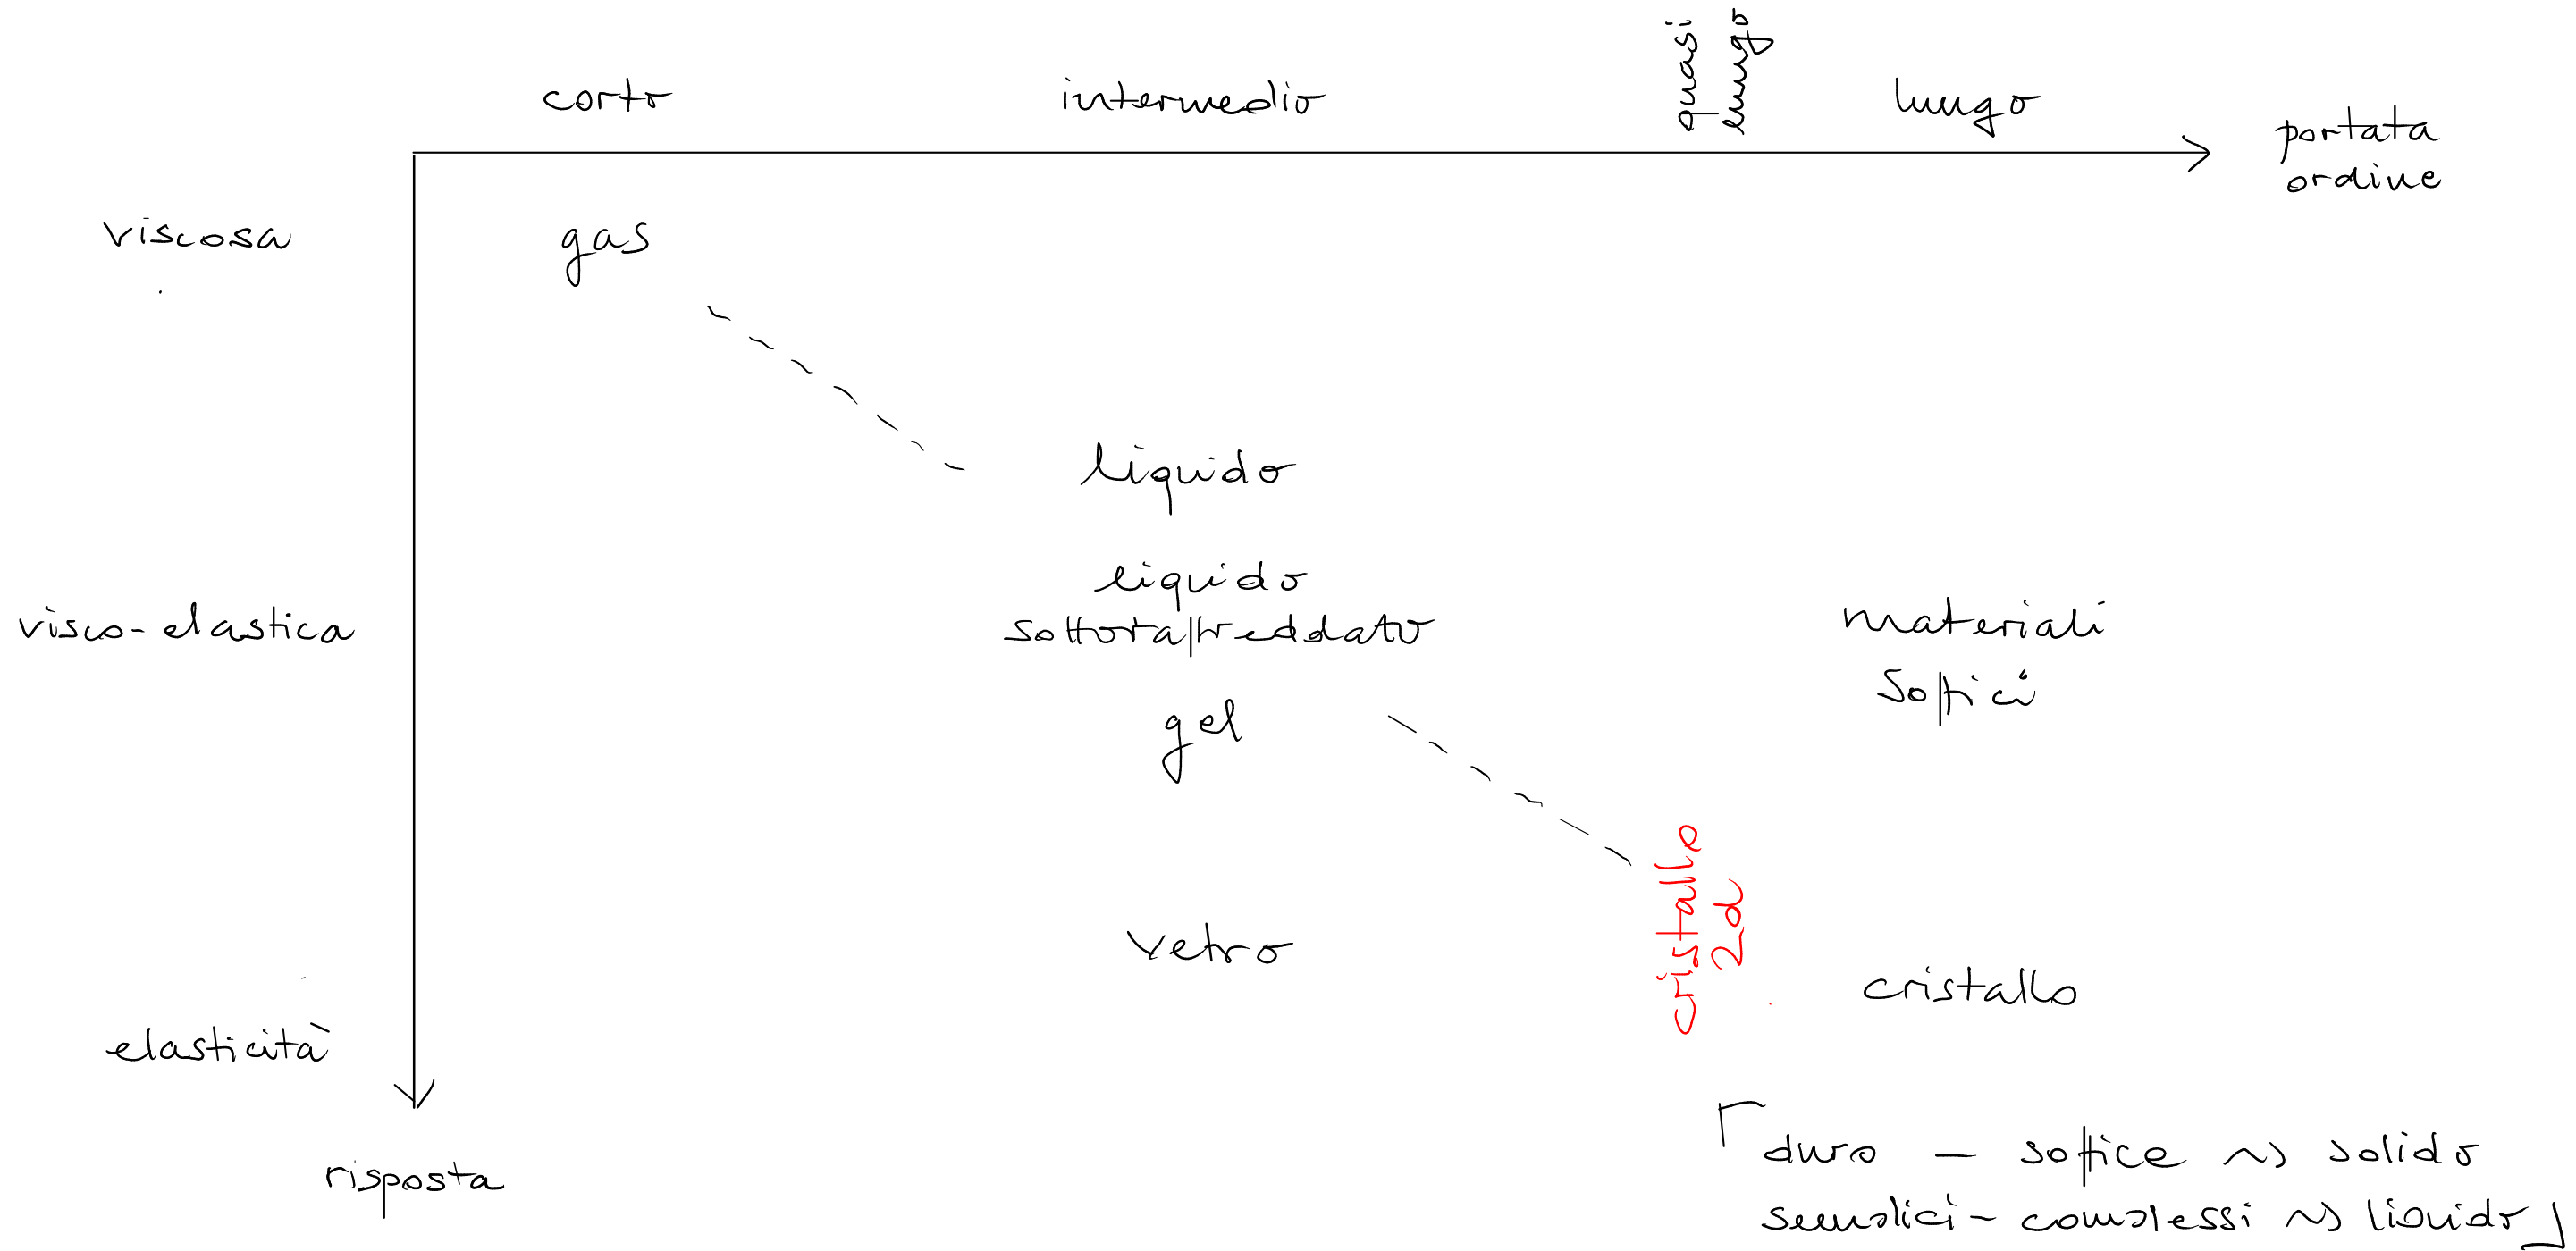 corto intermedio quasi lungo lungo
portata
ordine
viscosa gas
liquido
liquido
visco-elastica sottoraffreddato materiali
soffici
gel
cristallo
2d
vetro
cristallo
elasticità
risposta
duro – soffice ~> solido
semplici – complessi ~> liquido